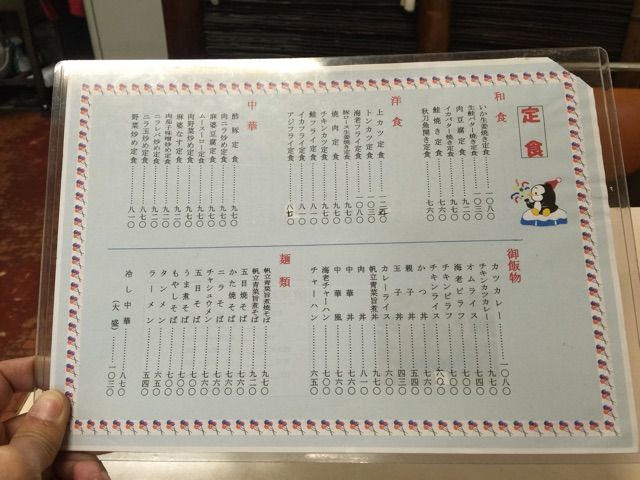 定食
和食
いか生姜焼き定食……一〇八〇
生鮭バター焼き定食……一〇三〇
肉豆腐定食……九七〇
イカバター焼き定食……九二〇
鮭焼き定食……七六〇
秋刀魚開き定食……七六〇
洋食
上カツ定食……一二五〇
トンカツ定食……一〇三〇
海老フライ定食……一〇八〇
豚ロース生姜焼き定食……九七〇
焼肉定食……九七〇
チキンカツ定食……八七〇
鮭フライ定食……八一〇
イカフライ定食……八一〇
アジフライ定食……八七〇
中華
酢豚定食……九七〇
肉ニラ炒め定食……九七〇
麻婆豆腐定食……九七〇
ムースーロー定食……九七〇
肉野菜炒め定食……九七〇
麻婆なす定食……九二〇
肉茄子味噌炒め定食……九二〇
ニラレバ炒め定食……九二〇
ニラ玉炒め定食……八七〇
野菜炒め定食……八一〇
御飯物
カツカレー……一〇八〇
チキンカツカレー……九七〇
オムライス……七四〇
海老ピラフ……七六〇
チキンピラフ……七六〇
チキンライス……六〇〇
かつ丼……七六〇
親子丼……五四〇
玉子丼……四三〇
カレーライス……六〇〇
帆立青菜旨煮丼……八七〇
肉丼……八一〇
中華丼……七六〇
中華風……七六〇
海老チャーハン……七六〇
チャーハン……六五〇
麺類
帆立青菜旨煮焼そば……九七〇
帆立青菜旨煮そば……九二〇
五目焼そば……七六〇
かた焼そば……七六〇
ニラそば……七六〇
チャシュウメン……七六〇
五目そば……七六〇
うま煮そば……七〇〇
もやしそば……七〇〇
タンメン……六五〇
ラーメン……五四〇
冷し中華……八七〇
(大盛)……一〇三〇